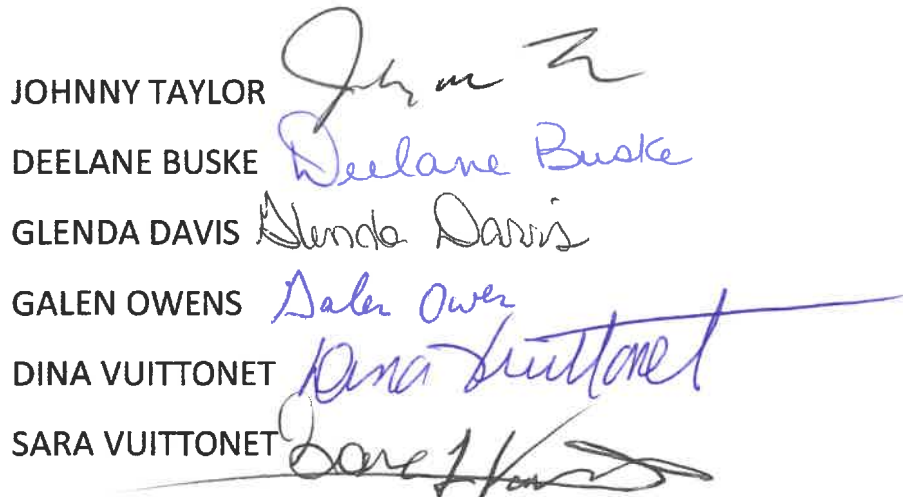 JOHNNY TAYLOR
DEELANE BUSKE Deelane Buske
GLENDA DAVIS Glenda Davis
GALEN OWENS Galen Owen
DINA VUITTONET Dina Vuittonet
SARA VUITTONET